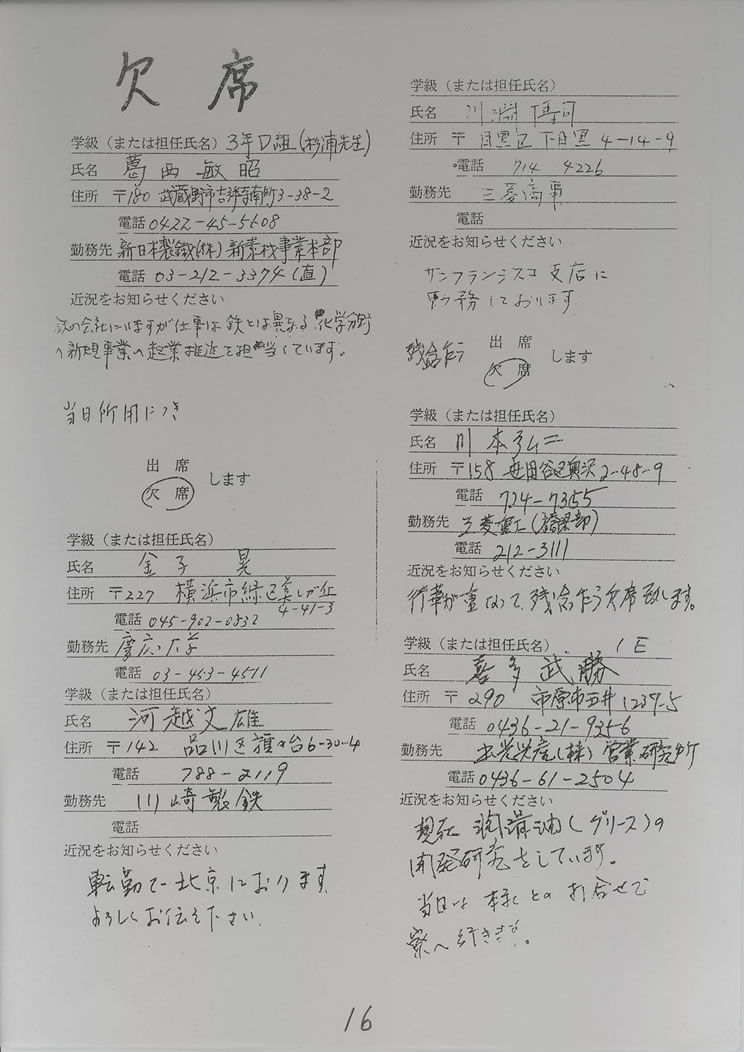 欠席
学級（または担任氏名）3年D組(杉浦先生)
氏名 葛西敏昭
住所 〒180 武蔵野市吉祥寺南町3-38-2
電話 0422-45-5608
勤務先 新日本製鐵(株) 新素材事業本部
電話 03-212-3374(直)
近況をお知らせください
鉄の会社にいますが仕事は鉄とは異なる化学分野
の新規事業の起業推進を担当しています。
当日所用につき
出席
欠席 します
学級（または担任氏名）
氏名 金子 晃
住所 〒227 横浜市緑区美しが丘
4-41-3
電話 045-902-0832
勤務先 慶応大学
電話 03-453-4511
学級（または担任氏名）
氏名 河越文雄
住所 〒142 品川区旗の台6-30-4
電話 788-2119
勤務先 川崎製鉄
電話
近況をお知らせください
転勤で北京におります
よろしくお伝え下さい
学級（または担任氏名）
氏名 川
住所 〒 目黒区下目黒 4-14-9
電話 714 4226
勤務先 三菱商事
電話
近況をお知らせください
サンフランシスコ支店に
勤務しております
残念乍ら 出席
欠席 します
学級（または担任氏名）
氏名 川本弘二
住所 〒158 世田谷区奥沢2-48-9
電話 724-7355
勤務先 三菱重工(橋梁部)
電話 212-3111
近況をお知らせください
行事が重なって、残念乍ら欠席致します。
学級（または担任氏名） 1E
氏名 喜多武勝
住所 〒290 市原市五井1237-5
電話 0436-21-9256
勤務先 出光興産(株) 営業研究所
電話 0436-61-2504
近況をお知らせください
現在 潤滑油(グリース)の
開発研究をしています。
当日は との打合せで
へ行きます。
16